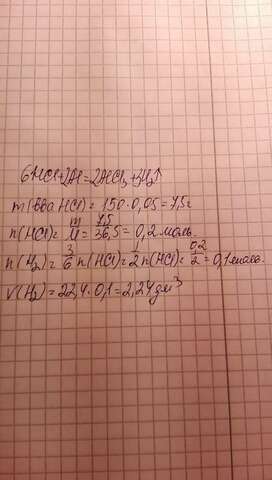 6HCl+2Al=2AlCl₃+3H₂↑
m(вва HCl)=150·0,05=7,5г
n(HCl)=m/M=7,5/36,5=0,2моль.
n(H₂)=3/6n(HCl)=1/2n(HCl)=0,2/2=0,1моль.
V(H₂)=22,4·0,1=2,24дм³